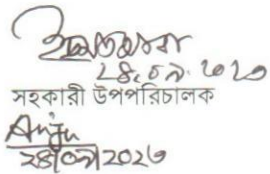 ২৪.০৯.২০২৩
সহকারী উপপরিচালক
Anju
২৪/০৯/২০২৩